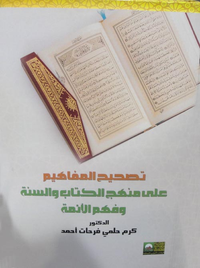 تصحيح المفاهيم
على منهج الكتاب والسنة
وفهم الأئمة
الدكتور
كرم حلمي فرحات أحمد